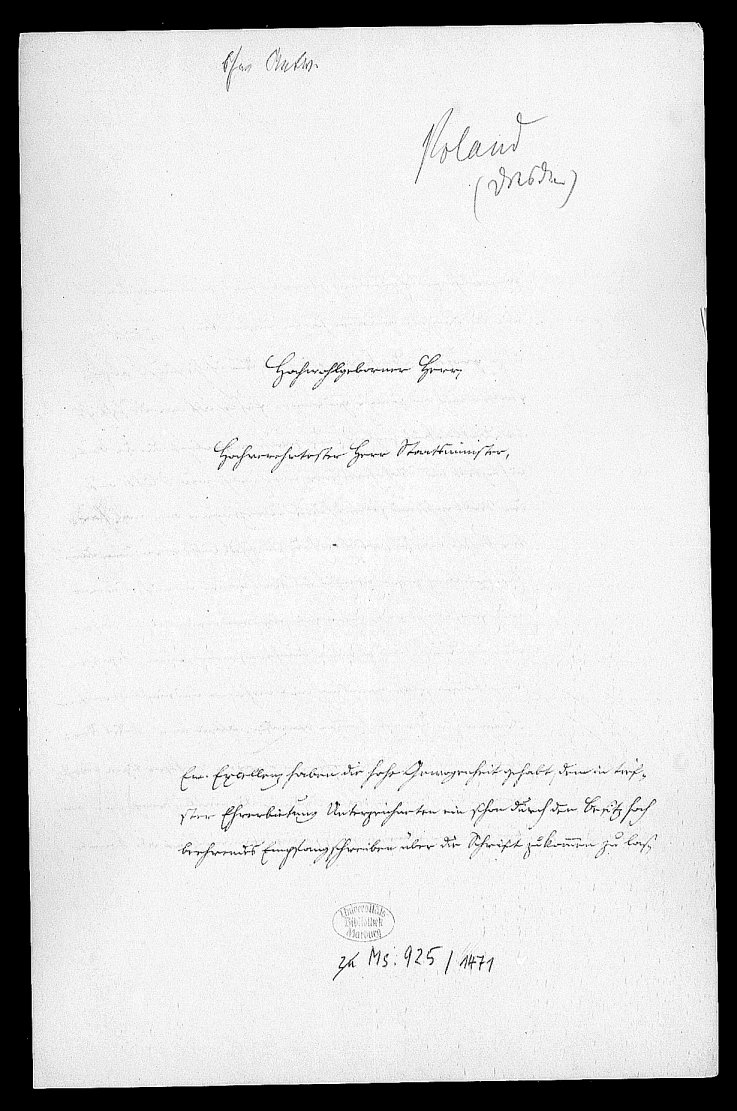 Roland
(Dresden)
Hochwohlgeborner Herr,
Hochverehrtester Herr Staatsminister,
Ew. Excellenz haben die hohe Gewogenheit gehabt, dem in tief-
ster Ehrerbietung Unterzeichneten ein schon durch den Besitz hoch
beehrendes Empfangschreiben über die Schrift zukommen zu las-
Universitäts
Bibliothek
Marburg
Ms. 925/1471